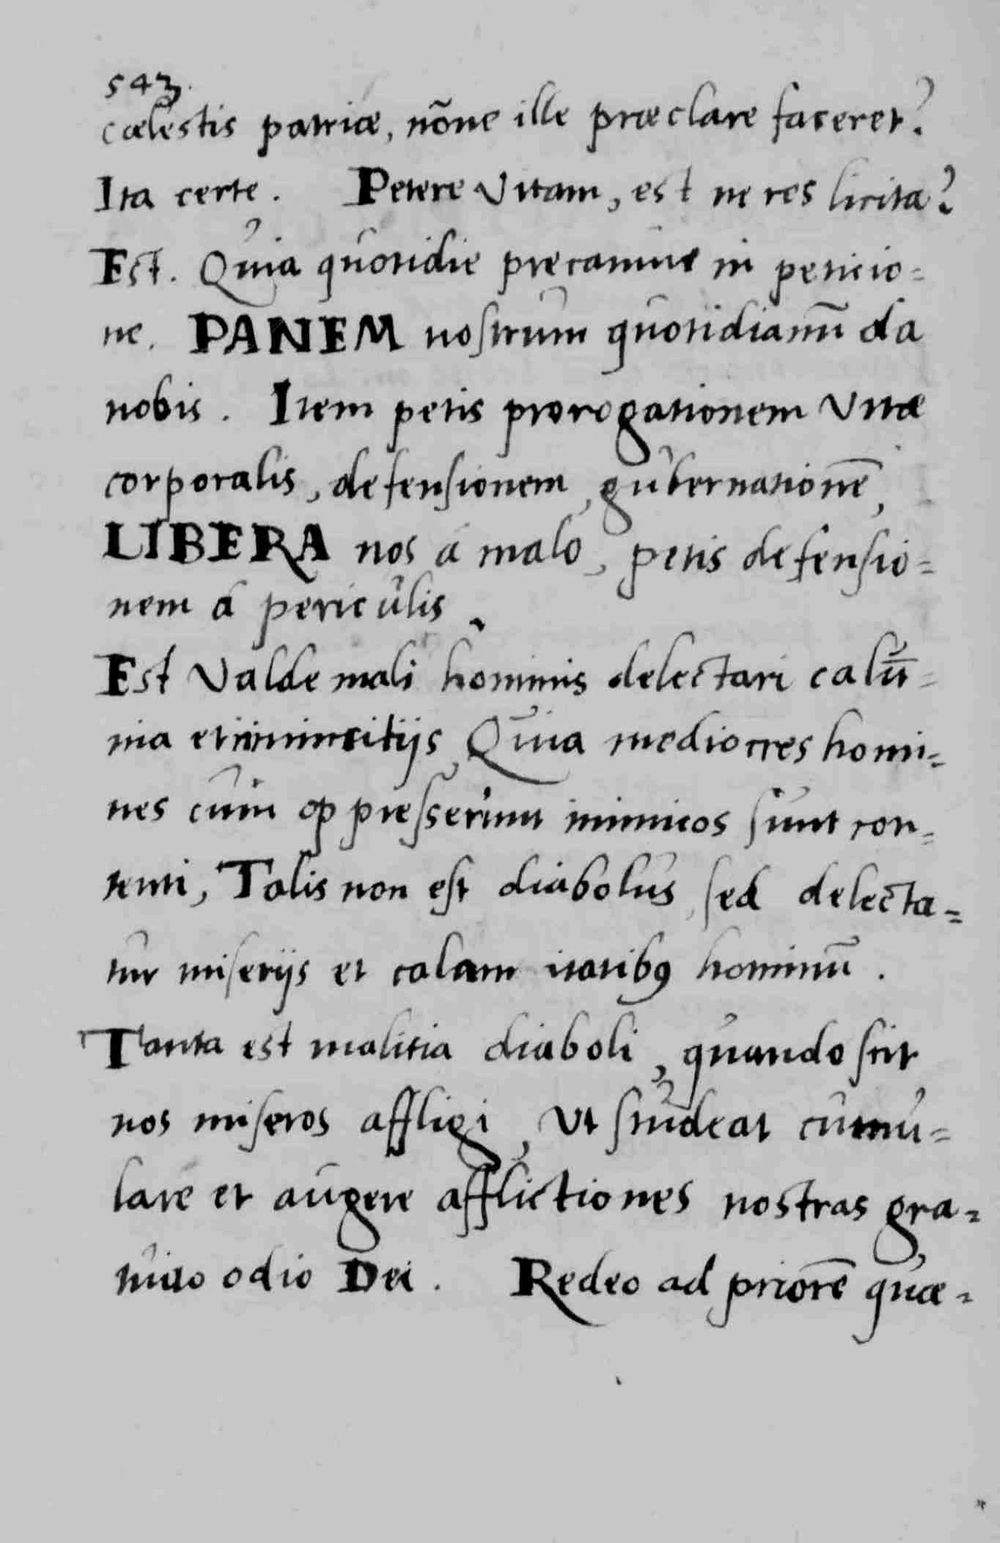 543.
cœlestis patriæ, nõne ille præclare faceret?
Ita certe. Petere vitam, est ne res licita?
Est. Quia quotidie precamur in peticio=
ne. PANEM nostrum quotidianũ da
nobis. Item petis prorogationem vitæ
corporalis, defensionem, gubernationẽ,
LIBERA nos á malo, petis defensio=
nem á periculis.
Est valde mali hominis delectari calũ=
nia et inimicitijs, Quia mediocres homi=
nes cum oppresserunt inimicos sunt con=
tenti, Talis non est diabolus, sed delecta=
tur miserijs et calamitatibꝰ hominũ.
Tanta est malitia diaboli, quando scit
nos miseros affligi, ut studeat cumu=
lare et augere afflictiones nostras, gra=
tuito odio Dei. Redeo ad priorẽ quæ=